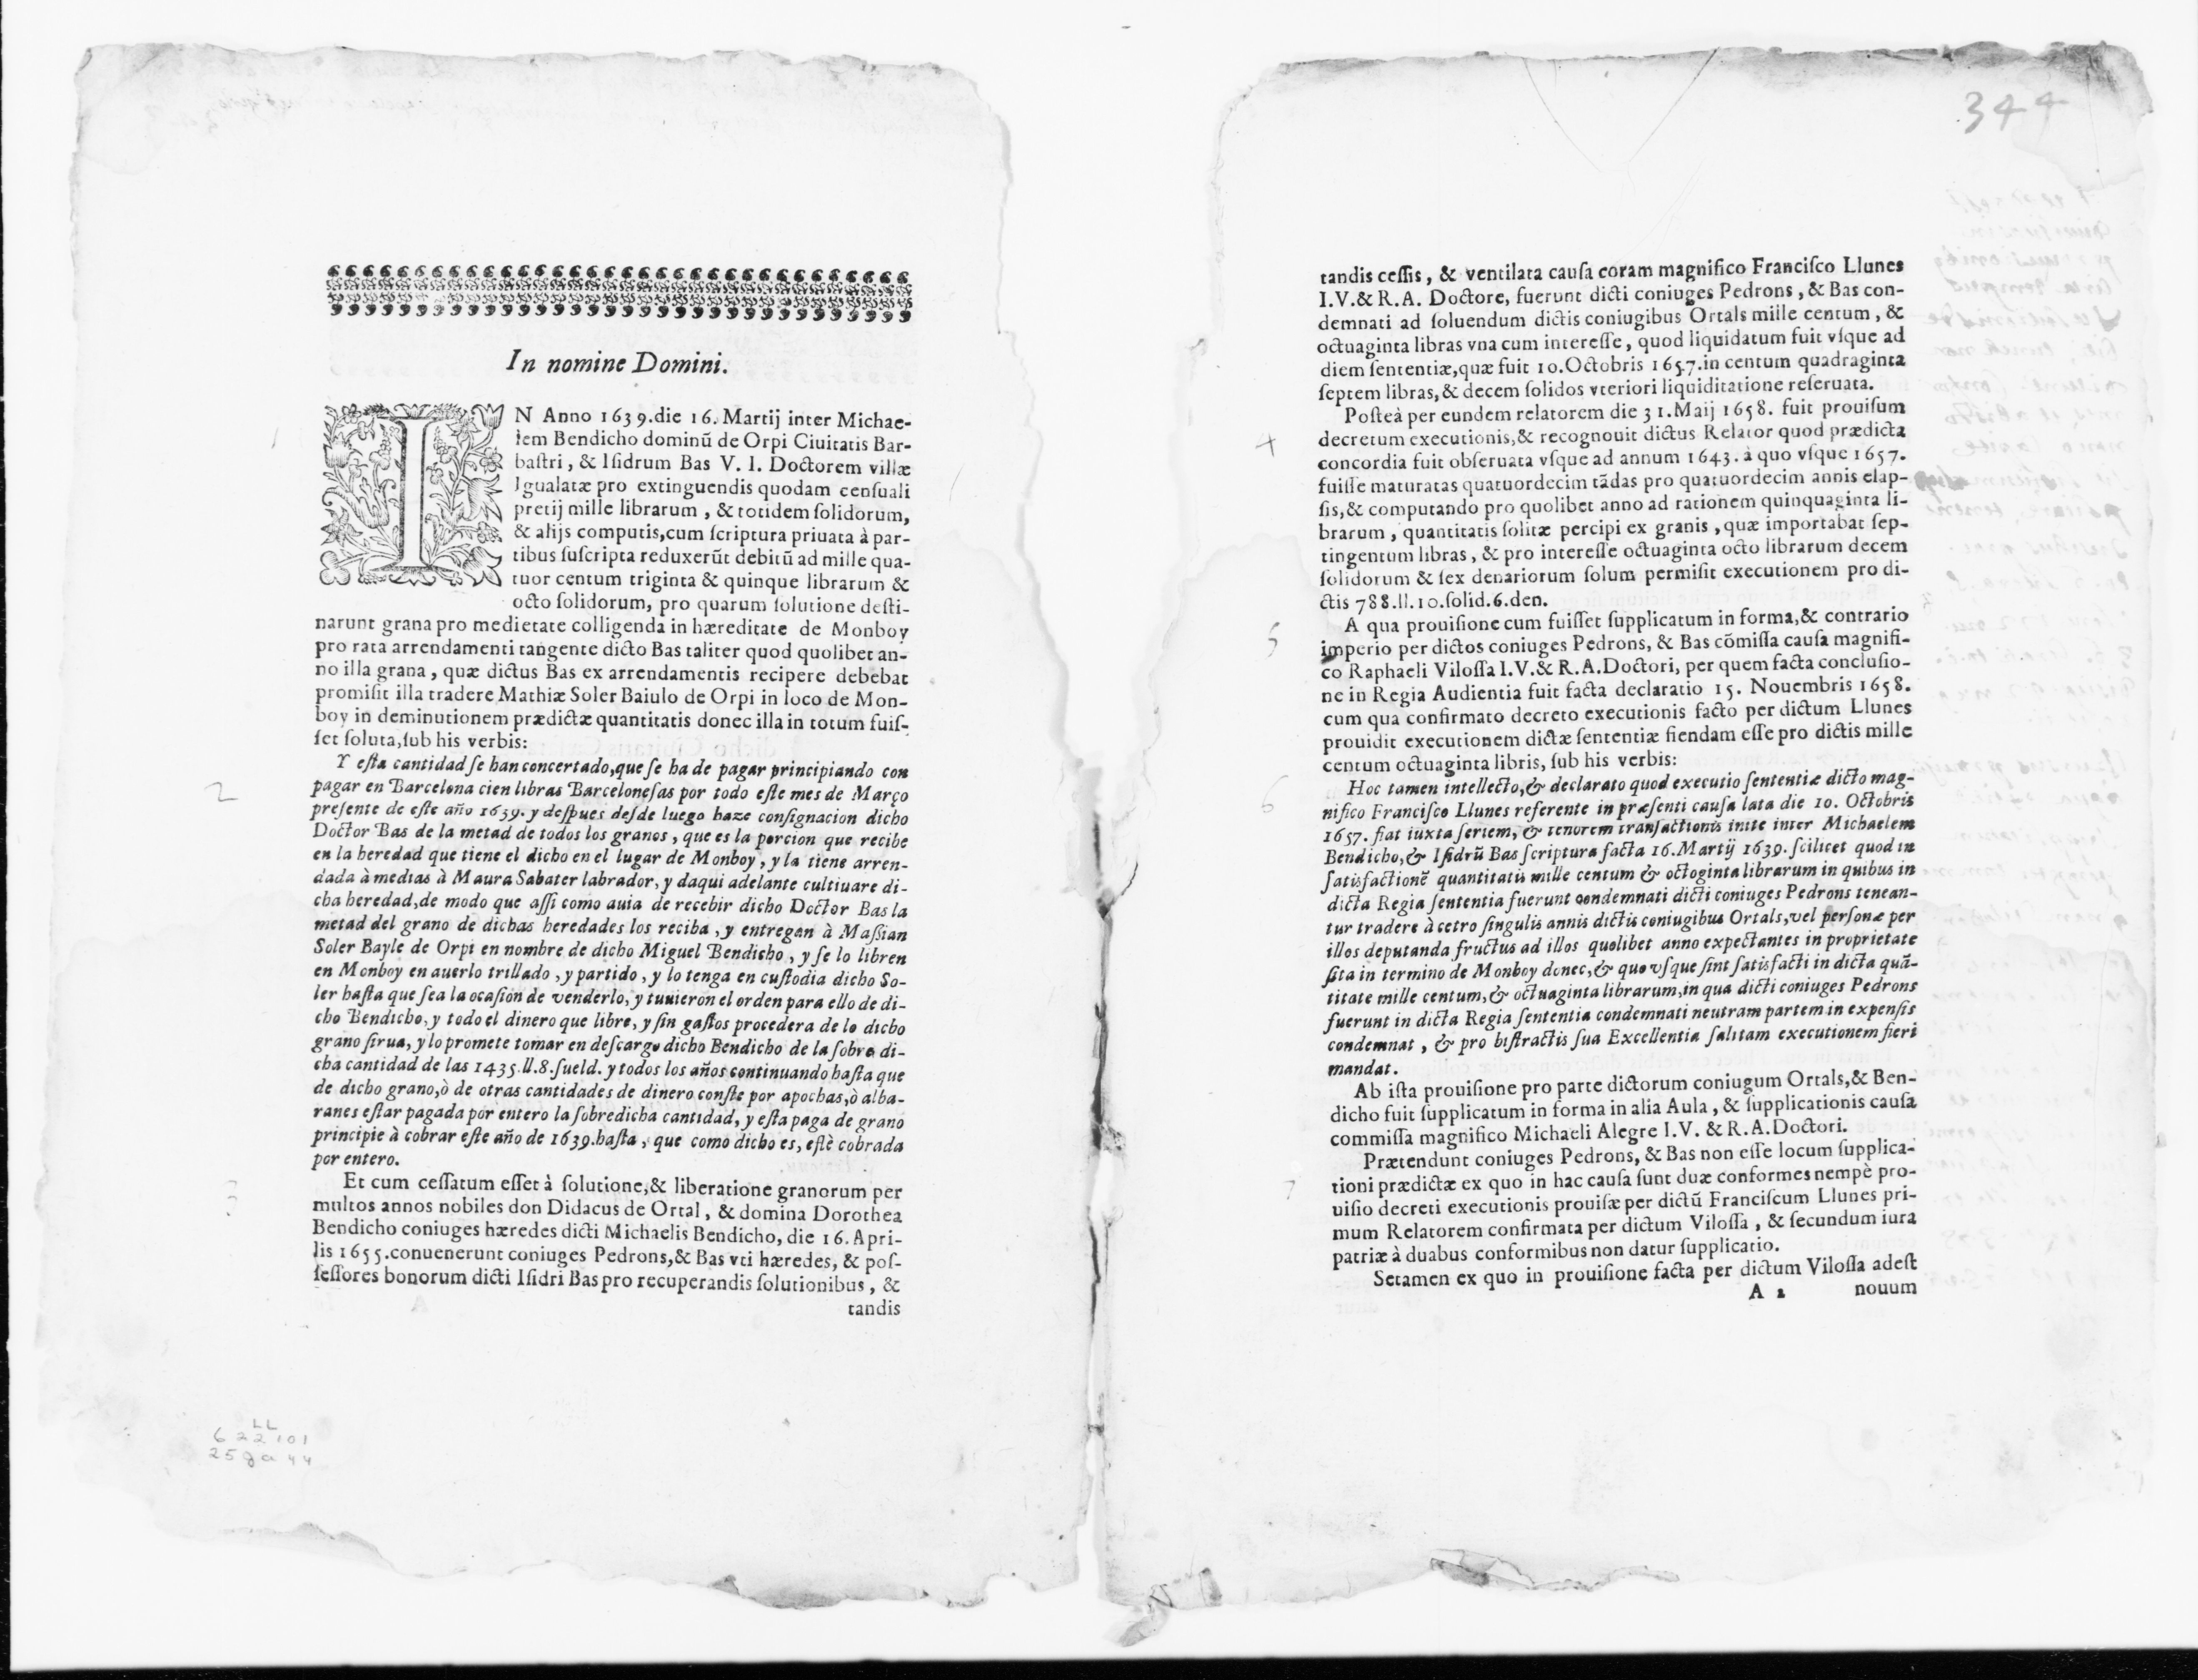 In nomine Domini.
IN Anno 1639.die 16. Martij inter Michae-
lem Bendicho dominũ de Orpi Ciuitatis Bar-
bastri, & Isidrum Bas V. I. Doctorem villæ
Igualatæ pro extinguendis quodam censuali
pretij mille librarum, & totidem solidorum,
& alijs computis,cum scriptura priuata à par-
tibus suscripta reduxerũt debitũ ad mille qua-
tuor centum triginta & quinque librarum &
octo solidorum, pro quarum solutione desti-
narunt grana pro medietate colligenda in hæreditate de Monboy
pro rata arrendamenti tangente dicto Bas taliter quod quolibet an-
no illa grana, quæ dictus Bas ex arrendamentis recipere debebat
promisit illa tradere Mathiæ Soler Baiulo de Orpi in loco de Mon-
boy in deminutionem prædictæ quantitatis donec illa in totum fuis-
set soluta,sub his verbis:
2
Y esta cantidad se han concertado,que se ha de pagar principiando con
pagar en Barcelona cien libras Barcelonesas por todo este mes de Março
presente de este año 1639. y despues desde luego haze consignacion dicho
Doctor Bas de la metad de todos los granos, que es la porcion que recibe
en la heredad que tiene el dicho en el lugar de Monboy, y la tiene arren-
dada à medias à Maura Sabater labrador, y daqui adelante cultiuare di-
cha heredad,de modo que assi como auia de recebir dicho Doctor Bas la
metad del grano de dichas heredades los reciba, y entregan à Massian
Soler Bayle de Orpi en nombre de dicho Miguel Bendicho, y se lo libren
en Monboy en auerlo trillado, y partido, y lo tenga en custodia dicho So-
ler hasta que sea la ocasion de venderlo, y tuuieron el orden para ello de di-
cho Bendicho, y todo el dinero que libre, y sin gastos procedera de lo dicho
grano sirua, y lo promete tomar en descargo dicho Bendicho de la sobre di-
cha cantidad de las 1435.ll.8.sueld. y todos los años continuando hasta que
de dicho grano,ò de otras cantidades de dinero conste por apochas,ò alba-
ranes estar pagada por entero la sobredicha cantidad, y esta paga de grano
principie à cobrar este año de 1639.hasta, que como dicho es, estè cobrada
por entero.
3
Et cum cessatum esset à solutione,& liberatione granorum per
multos annos nobiles don Didacus de Ortal, & domina Dorothea
Bendicho coniuges hæredes dicti Michaelis Bendicho, die 16. Apri-
lis 1655.conuenerunt coniuges Pedrons,& Bas vti hæredes, & pos-
sessores bonorum dicti Isidri Bas pro recuperandis solutionibus, &
tandis
LL
6 22 101
25 ga 44
344
tandis cessis, & ventilata causa coram magnifico Francisco Llunes
I.V.& R.A. Doctore, fuerunt dicti coniuges Pedrons, & Bas con-
demnati ad soluendum dictis coniugibus Ortals mille centum, &
octuaginta libras vna cum interesse, quod liquidatum fuit vsque ad
diem sententiæ,quæ fuit 10.Octobris 1657.in centum quadraginta
septem libras,& decem solidos vteriori liquiditatione reseruata.
4
Posteà per eundem relatorem die 31.Maij 1658. fuit prouisum
decretum executionis,& recognouit dictus Relator quod prædicta
concordia fuit obseruata vsque ad annum 1643. à quo vsque 1657.
fuisse maturatas quatuordecim tãdas pro quatuordecim annis elap-
sis,& computando pro quolibet anno ad rationem quinquaginta li-
brarum, quantitatis solitæ percipi ex granis, quæ importabat sep-
tingentum libras, & pro interesse octuaginta octo librarum decem
solidorum & sex denariorum solum permisit executionem pro di-
ctis 788.ll.10.solid.6.den.
5
A qua prouisione cum fuisset supplicatum in forma,& contrario
imperio per dictos coniuges Pedrons, & Bas cõmissa causa magnifi-
co Raphaeli Vilossa I.V.& R.A.Doctori, per quem facta conclusio-
ne in Regia Audientia fuit facta declaratio 15. Nouembris 1658.
cum qua confirmato decreto executionis facto per dictum Llunes
prouidit executionem dictæ sententiæ fiendam esse pro dictis mille
centum octuaginta libris, sub his verbis:
6
Hoc tamen intellecto,& declarato quod executio sententiæ dicto mag-
nifico Francisco Llunes referente in præsenti causa lata die 10. Octobris
1657. fiat iuxta seriem, & tenorem transactionis inite inter Michaelem
Bendicho,& Isidrũ Bas scriptura facta 16.Martij 1639. scilicet quod in
satisfactionẽ quantitatis mille centum & octoginta librarum in quibus in
dicta Regia sententia fuerunt condemnati dicti coniuges Pedrons tenean-
tur tradere à cetro singulis annis dictis coniugibus Ortals,vel personæ per
illos deputanda fructus ad illos quolibet anno expectantes in proprietate
sita in termino de Monboy donec,& quo vsque sint satisfacti in dicta quã-
titate mille centum,& octuaginta librarum,in qua dicti coniuges Pedrons
fuerunt in dicta Regia sententia condemnati neutram partem in expensis
condemnat, & pro bistractis sua Excellentia salitam executionem fieri
mandat.
Ab ista prouisione pro parte dictorum coniugum Ortals,& Ben-
dicho fuit supplicatum in forma in alia Aula, & supplicationis causa
commissa magnifico Michaeli Alegre I.V. & R.A.Doctori.
7
Prætendunt coniuges Pedrons, & Bas non esse locum supplica-
tioni prædictæ ex quo in hac causa sunt duæ conformes nempè pro-
uisio decreti executionis prouisæ per dictũ Franciscum Llunes pri-
mum Relatorem confirmata per dictum Vilossa, & secundum iura
patriæ à duabus conformibus non datur supplicatio.
Setamen ex quo in prouisione facta per dictum Vilossa adest
A 2 nouum